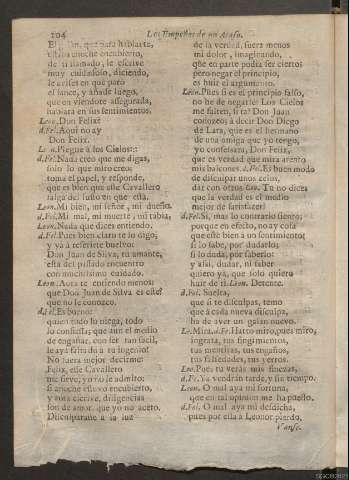 104 Los Empeños de un Acaso.
que para hablarte,
noche encubierto,
de ti llamado, le escrive
muy cuidadoso, diciendo,
le avises en què parò
el lance, y añade luego,
que en viendote assegurada,
hablarà en sus sentimientos.
Leon. Don Felix?
d.Fel. Aqui no ay
Don Felix.
Leon. Plegue à los Cielos::
d.Fel. Nada creo que me digas,
solo lo que miro creo:
toma el papel, y responde,
que es bien que esse Cavallero
salga del susto en que està.
Leon. Mi bien, mi señor, mi dueño.
d.Fel. Mi mal, mi muerte, mi rabia,
Leon. Nada que dices entiendo.
d.Fel. Pues bien claro te lo digo;
y và à referirte buelvo:
Don Juan de Silva, tu amante,
està del passado encuentro
con muchissimo cuidado.
Leon. Aora te entiendo menos:
què Don Juan de Silva es esse?
que no le conozco.
d.Fel. Es bueno:
quien todo lo niega, todo
lo confiessa; que aun el medio
de engañar, con ser tan facil,
le aya faltado à tu ingenio!
No fuera mejor decirme:
Felix, esse Cavallero
me sirve, yo no le admito;
si anoche estuvo encubierto,
y aora escrive, diligencias
son de amor, que yo no aceto.
Disculparante à la luz
de la verdad, fuera menos
mi dolor, imaginando,
que en parte podia ser cierto;
pero negar el principio,
es huir el argumento.
Leon. Pues si es el principio falso,
no he de negarle? Los Cielos
me falten, si tal Don Juan
conozco; à decir Don Diego
de Lara, que es el hermano
de una amiga que yo tengo,
yo confessara, Don Felix,
que es verdad que mira atento
mis balcones. d.Fel. Es buen modo
de disculpar unos zelos,
dar con otros. Leon. Tu no dices
que la verdad es el medio
mejor de satisfacer?
d.Fel. Sì, mas lo contrario siento;
porque en efecto, no ay cosa
que estè bien à un sentimiento;
si lo sabe, por dudarlo;
si lo duda, por saberlo:
y assi, dudar, ni saber
quiero yà, que solo quiero
huir de ti. Leon. Detente.
d.Fel. Suelta,
que si te disculpas, temo
que à cada nueva disculpa,
ha de aver un galan nuevo.
Le. Mira. d.Fe. Harto miro, pues miro,
ingrata, tus fingimientos,
tus mentiras, tus engaños,
tus falsedades, tus yerros.
Leo. Pues tu veràs mis finezas,
d.Fe. Ya vendràn tarde, y sin tiempo.
Leon. O mal aya mi fortuna,
que en tal opinion me ha puesto.
d.Fel. O mal aya mi desdicha,
pues por ella à Leonor pierdo.
Vanse.